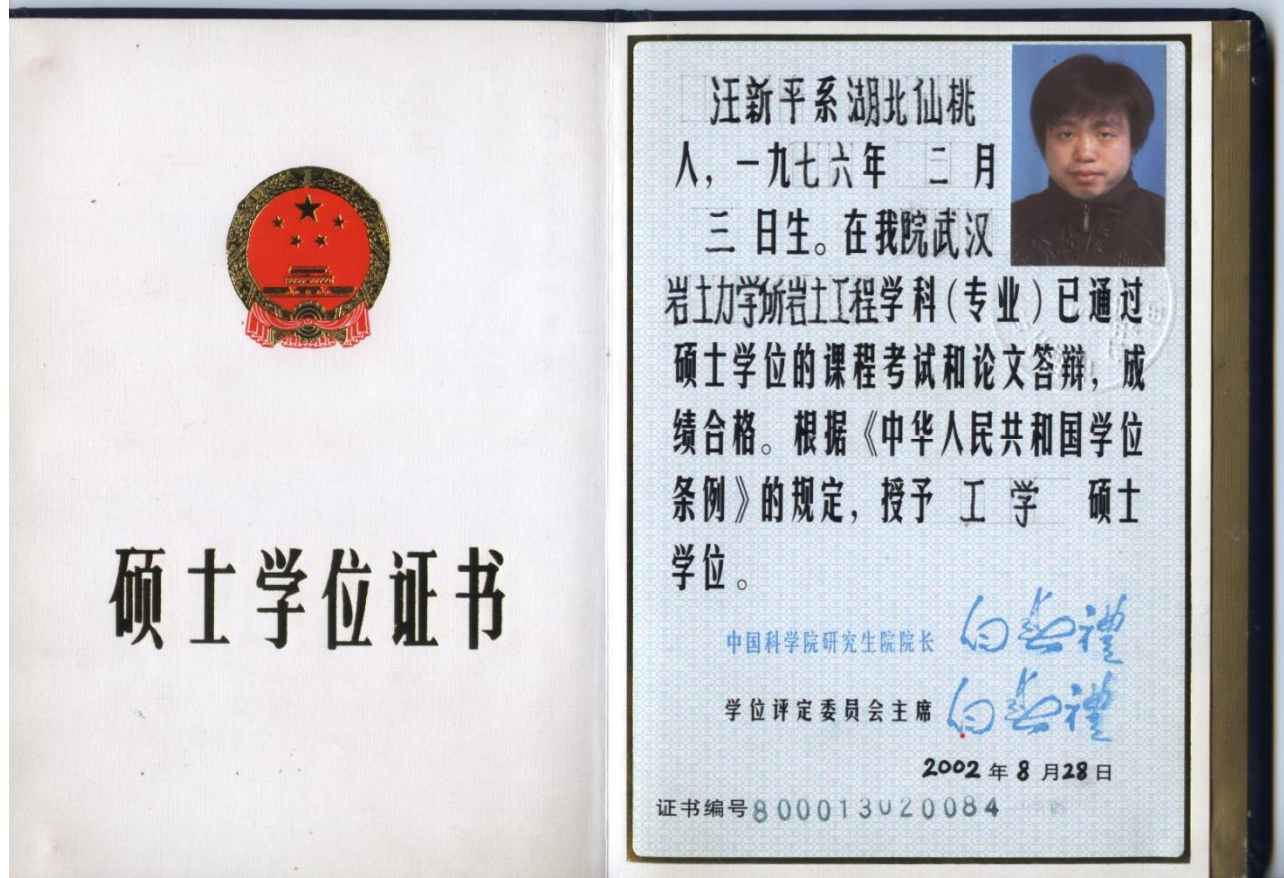 硕士学位证书
汪新平系湖北仙桃
人，一九七六年 二 月
三 日生。在我院武汉
岩土力学所岩土工程学科（专业）已通过
硕士学位的课程考试和论文答辩，成
绩合格。根据《中华人民共和国学位
条例》的规定，授予 工 学 硕士
学位。
中国科学院研究生院院长
学位评定委员会主席
2002 年 8 月 28 日
证书编号 800013020084